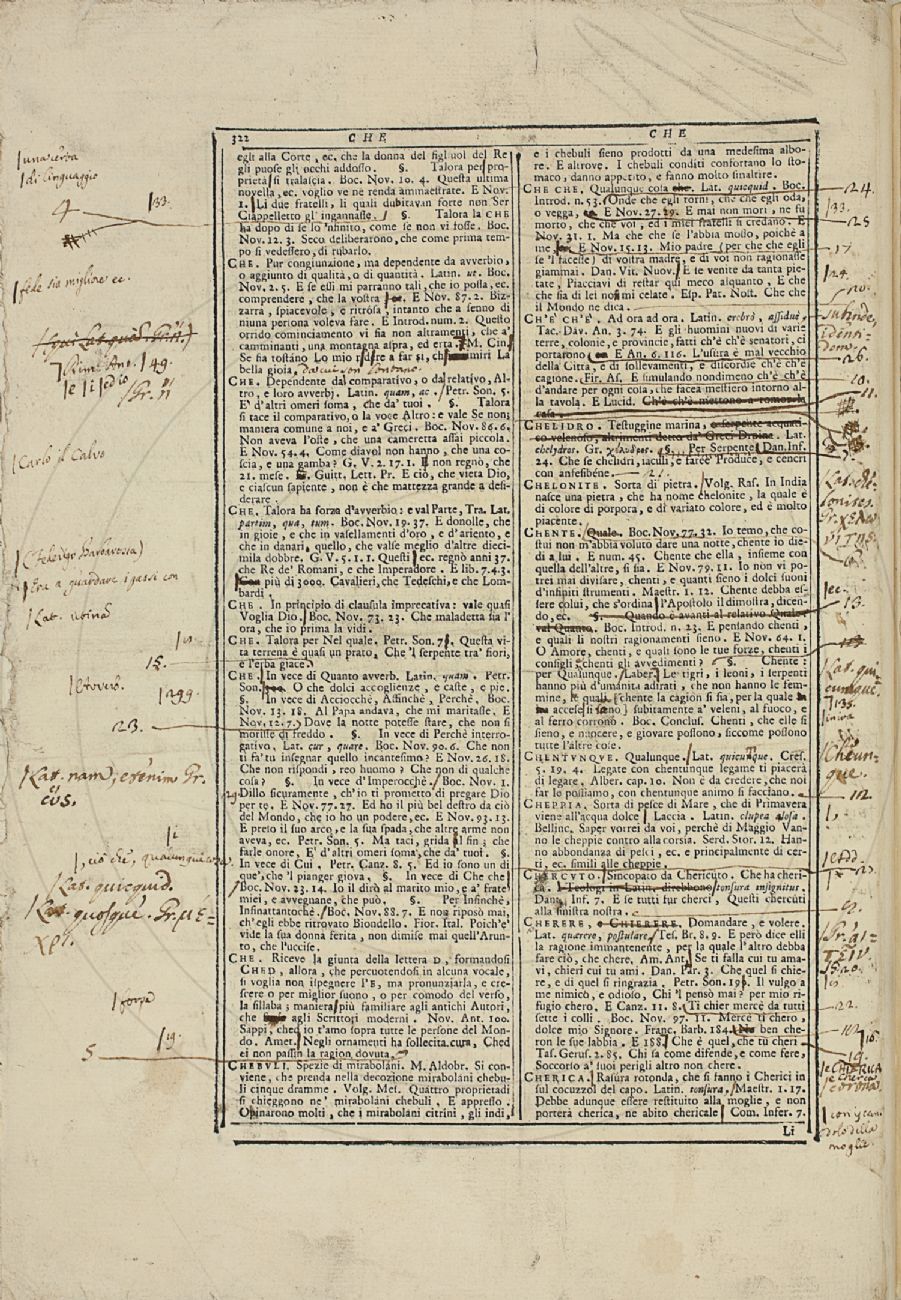 322 CHE
CHE
egli alla Corte, ec. che la donna del figliuol del Re
gli puose gli occhi addosso. §. Talora per pro-
prietà si tralascia. Boc. Nov. 10. 4. Questa ultima
novella, ec. voglio ve ne renda ammaestrate. E Nov.
1. Li due fratelli, li quali dubitavan forte non Ser
Ciappelletto gl' ingannasse. §. Talora la CHE
ha dopo di se lo 'nfinito, come se non vi fosse. Boc.
Nov. 12. 3. Seco deliberarono, che come prima tem-
po si vedessero, di rubarlo.
CHE. Pur congiunzione, ma dependente da avverbio,
o aggiunto di qualità, o di quantità. Latin. ut. Boc.
Nov. 2. 5. E se elli mi parranno tali, che io possa, ec.
comprendere, che la vostra ec. E Nov. 87. 2. Biz-
zarra, spiacevole, e ritrosa, intanto che a senno di
niuna persona voleva fare. E Introd. num. 2. Questo
orrido cominciamento vi sia non altramenti, che a'
camminanti, una montagna aspra, ed erta. M. Cin.
Se sia tostáno Lo mio r dire a far sì, ch miri La
bella gioia, da cui son lontano.
CHE. Dependente dal comparativo, o da relativo, Al-
tro, e loro avverbj. Latin. quam, ac. Petr. Son. 5.
E' d'altri omeri soma, che da' tuoi. §. Talora
si tace il comparativo, o la voce Altro: e vale Se non;
maniera comune a noi, e a' Greci. Boc. Nov. 86. 6.
Non aveva l'oste, che una cameretta assai piccola.
E Nov. 54. 4. Come diavol non hanno, che una co-
scia, e una gamba? G. V. 2. 17. 1. Il non regnò, che
21. mese. G. Guitt. Lett. Pr. E ciò, che vieta Dio,
e ciascun sapiente, non è che mattezza grande a desi-
derare.
CHE. Talora ha forza d'avverbio: e val Parte, Tra. Lat.
partim, qua, tum. Boc. Nov. 19. 37. E donolle, che
in gioie, e che in vasellamenti d'oro, e d'ariento, e
che in danari, quello, che valse meglio d'altre dieci-
mila dobbre. G. V. 5. 1. 1. Questi ec. regnò anni 37.
che Re de' Romani, e che Imperadore. E lib. 7. 4. 3.
Con più di 3000. Cavalieri, che Tedeschi, e che Lom-
bardi.
CHE. In principio di clausula imprecativa: vale quasi
Voglia Dio. Boc. Nov. 73. 23. Che maladetta sia l'
ora, che io prima la vidi.
CHE. Talora per Nel quale. Petr. Son. 7. Questa vi-
ta terrena è quasi un prato, Che 'l serpente tra' fiori,
e l'erba giace.
CHE. In vece di Quanto avverb. Latin. quam. Petr.
Son. O che dolci accoglienze, e caste, e pie.
§. In vece di Acciocchè, Affinchè, Perchè. Boc.
Nov. 13. 18. Al Papa andava, che mi maritasse. E
Nov. 12. 7. Dove la notte potesse stare, che non si
morisse di freddo. §. In vece di Perchè interro-
gativo. Lat. cur, quare. Boc. Nov. 90. 6. Che non
ti fa' tu insegnar quello incantesimo? E Nov. 26. 18.
Che non rispondi, reo huomo? Che non di qualche
cosa? §. In vece d'Imperocchè. Boc. Nov. 1.
29 Dillo sicuramente, ch'io ti prometto di pregare Dio
per te. E Nov. 77. 27. Ed ho il più bel destro da ciò
del Mondo, che io ho un podere, ec. E Nov. 93. 13.
E preso il suo arco, e la sua spada, che altre arme non
aveva, ec. Petr. Son. 5. Ma taci, grida il fin; che
farle onore, E' d'altri omeri soma, che da' tuoi. §.
In vece di Cui. Petr. Canz. 8. 5. Ed io sono un di
que', che 'l pianger giova. §. In vece di Che che
Boc. Nov. 23. 14. Io il dirò al marito mio, e a' frate
miei, e avvegnane, che può. §. Per Infinchè,
Infinattantochè. Boc. Nov. 88. 7. E non riposò mai,
ch'egli ebbe ritrovato Biondello. Fior. Ital. Poich'e'
vide la sua donna ferita, non dimise mai quell'Arun-
to, che l'uccise.
CHE. Riceve la giunta della lettera D, formandosi
CHED, allora, che percuotendosi in alcuna vocale,
si voglia non ispegnere l'E, ma pronunziarla, e cre-
scere o per miglior suono, o per comodo del verso,
la sillaba; maniera più familiare agli antichi Autori,
che agli Scrittori moderni. Nov. Ant. 100.
Sappi, ched io t'amo sopra tutte le persone del Mon-
do. Amet. Negli ornamenti ha sollecita cura, Ched
ei non passin la ragion dovuta.
CHEBULI. Spezie di mirabolani. M. Aldobr. Si con-
viene, che prenda nella decozione mirabolani chebu-
li cinque dramme. Volg. Mes. Quattro proprietadi
si chieggono ne' mirabolani chebuli. E appresso.
Opinarono molti, che i mirabolani citrini, gli indi,
e i chebuli sieno prodotti da una medesima albo-
re. E altrove. I chebuli conditi confortano lo sto-
maco, danno appetito, e fanno molto smaltire.
CHE CHE. Qualunque cosa che. Lat. quicquid. Boc.
Introd. n. 53. Onde che egli torni, che che egli oda,
o vegga, E Nov. 27. 29. E mai non mori, ne fu
morto, che che voi, ed i miei fratelli si credano. E
Nov. 31. 1. Ma che che se l'abbia mosso, poichè a
me E Nov. 15. 13. Mio padre (per che che egli
se 'l facesse) di vostra madre, e di voi non ragionasse
giammai. Dan. Vit. Nuov. E se venite da tanta pie-
tate, Piacciavi di restar qui meco alquanto, E che
che sia di lei nol mi celate. Esp. Pat. Nost. Che che
il Mondo ne dica.
CH'È CH'È. Ad ora ad ora. Latin. crebrò, assiduè,
Tac. Dav. An. 3. 74. E gli huomini nuovi di varie
terre, colonie, e provincie, fatti ch'è ch'è senatori, ci
portarono E An. 6. 116. L'usura è mal vecchio
della Città, e di sollevamenti, e discordie ch'è ch'è
cagione. Fir. As. E simulando nondimeno ch'è ch'è
d'andare per ogni cosa, che facea mestiero intorno al-
la tavola. E Lucid. Ch'è ch'è mettono a romor la
casa.
CHELIDRO. Testuggine marina, o serpente acquati-
co velenoso, altrimenti detto da' Greci Druina. Lat.
chelydros. Gr. χέλυδρος. §. Per Serpente. Dan. Inf.
24. Che se chelidri, iaculi, e faree Produce, e cencri
con anfesibéne.
CHELONITE. Sorta di pietra. Volg. Ras. In India
nasce una pietra, che ha nome chelonite, la quale è
di colore di porpora, e di variato colore, ed è molto
piacente.
CHENTE. Quale. Boc. Nov. 77. 32. Io temo, che co-
stui non m'abbia voluto dare una notte, chente io die-
di a lui. E num. 45. Chente che ella, insieme con
quella dell'altre, si sia. E Nov. 79. 11. Io non vi po-
trei mai divisare, chenti, e quanti sieno i dolci suoni
d'infiniti strumenti. Maestr. 1. 12. Chente debba es-
sere colui, che s'ordina l'Apostolo il dimostra, dicen-
do, ec. §. Quando è avanti al relativo Quale
val Quanto. Boc. Introd. n. 23. E pensando chenti,
e quali i nostri ragionamenti sieno. E Nov. 64. 1.
O Amore, chenti, e quali sono le tue forze, chenti i
consigli chenti gli avvedimenti? §. Chente:
per Qualunque. Laber. Le tigri, i leoni, i serpenti
hanno più d'umanità adirati, che non hanno le fem-
mine, le quali (chente la cagion si sia, per la quale
accese sieno) subitamente a' veleni, al fuoco, e
al ferro corrono. Boc. Conclus. Chenti, che elle si
sieno, e nuocere, e giovare possono, siccome possono
tutte l'altre cose.
CHENTUNQUE. Qualunque. Lat. quicumque. Cres.
5. 19. 4. Legate con chentunque legame ti piacerà
di legare. Alber. cap. 10. Non è da credere, che noi
far lo possiamo, con chentunque animo si facciano.
CHEPPIA. Sorta di pesce di Mare, che di Primavera
viene all'acqua dolce Laccia. Latin. clupea alosa.
Bellinc. Saper vorrei da voi, perchè di Maggio Van-
no le cheppie contro alla corsìa. Serd. Stor. 12. Han-
no abbondanza di pesci, ec. e principalmente di cer-
ti, ec. simili alle cheppie.
CHERCUTO. Sincopato da Chericuto. Che ha cheri-
ca. I Teologi in Latin. direbbono tonsura insignitus.
Dant. Inf. 7. E se tutti fur cherci, Questi chercuti
alla sinistra nostra.
CHERERE, e CHIERERE. Domandare, e volere.
Lat. quærere, postulare. Tes. Br. 8. 9. E però dice elli
la ragione immantenente, per la quale l'altro debba
fare ciò, che chere. Am. Ant. Se ti falla cui tu ama-
vi, chieri cui tu ami. Dan. Par. 3. Che quel si chie-
re, e di quel si ringrazia. Petr. Son. 19. Il vulgo a
me nimico, e odioso, Chi 'l pensò mai? per mio ri-
fugio chero. E Canz. 11. 8. Ti chier mercè da tutti
sette i colli. Boc. Nov. 97. 11. Mercè ti chero,
dolce mio Signore. Franc. Barb. 184. ben che-
ron le sue labbia. E 188. Che è quel, che tu cheri
Tas. Gerus. 2. 85. Chi sa come difende, e come fere,
Soccorso a' suoi perigli altro non chere.
CHERICA. Rasura rotonda, che si fanno i Cherici in
sul cocuzzol del capo. Latin. tonsura. Maestr. 1. 17.
Debbe adunque essere restituito alla moglie, e non
porterà cherica, ne abito chericale Com. Infer. 7.
Li
una cerba
di linguaggio
33.
4
fede sia migliore ec.
Rim. Ant. 49.
Carlo il Calvo
(Federigo Barbarossa)
Era a guardare i passi con
Lat. utinà
15.
1399.
23.
Lat. nam, etenim Gr.
ciò chè, qualunque cosa
Lat. quicquid.
Lat. quosque. Gr. με-
χρι.
forza
19.
5
24.
33.
28
17
24.
Subinde,
identi-
dem.
26.
10.
11.
21.
ec.
13.
Lat. qui-
cumque.
135.
Cheun-
que.
112.
22.
16.
19.
e CHIERICA
corona.
con y cam
della
moglie.